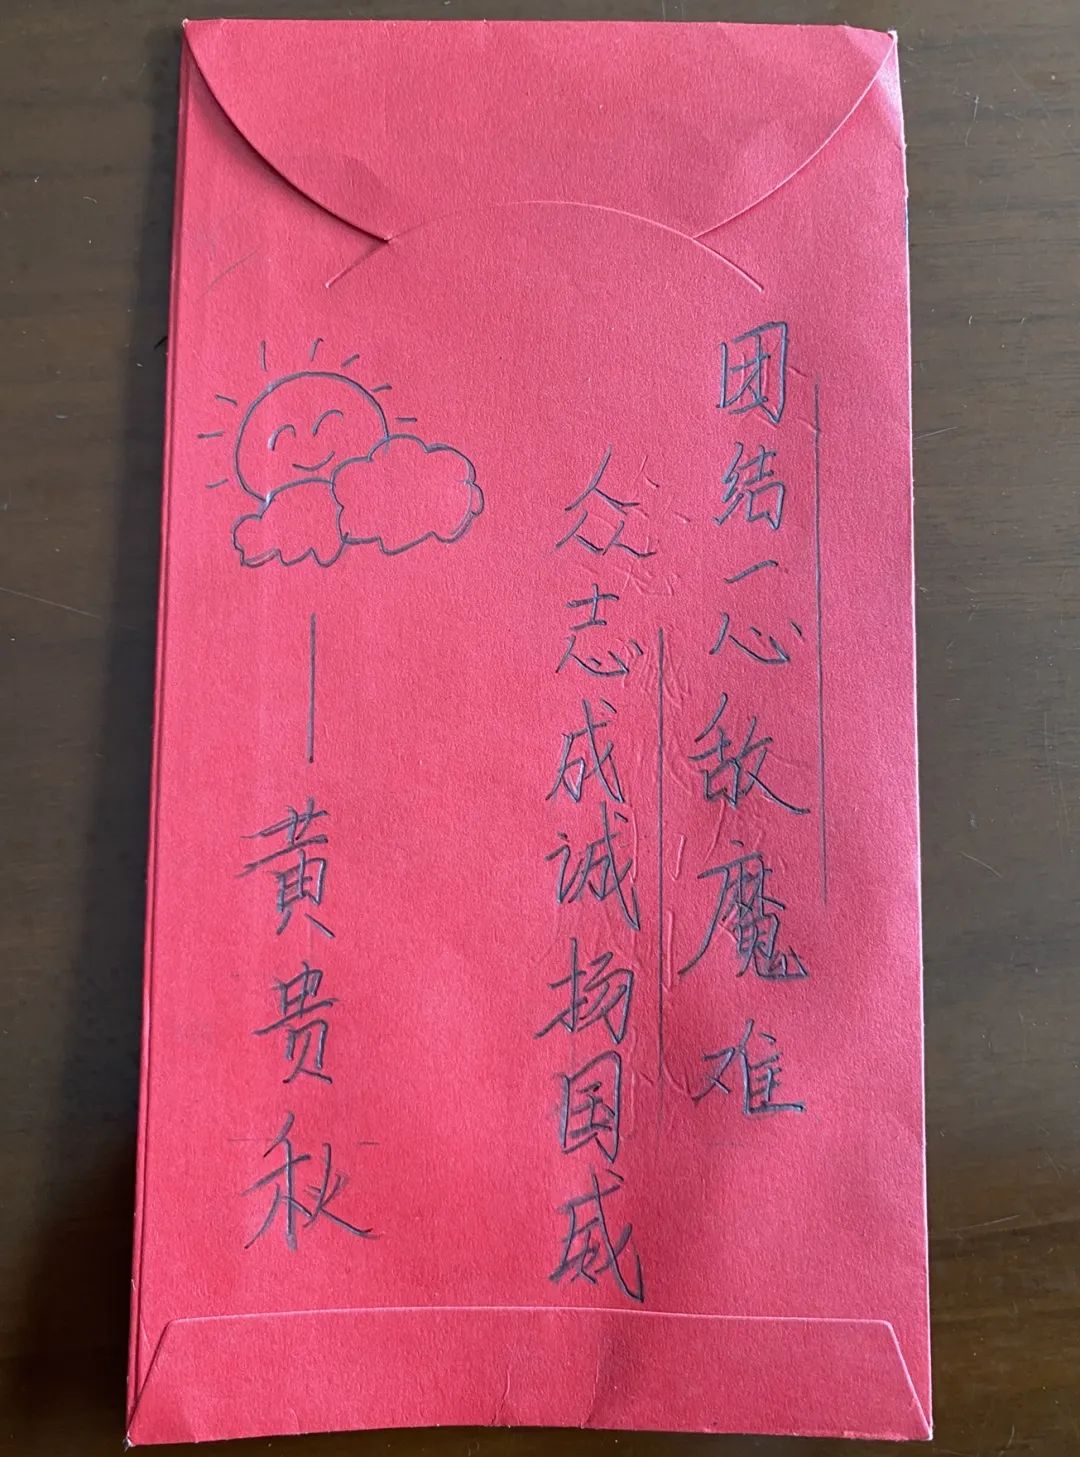 团结一心敌魔难
众志成诚扬国威
——黄贵秋